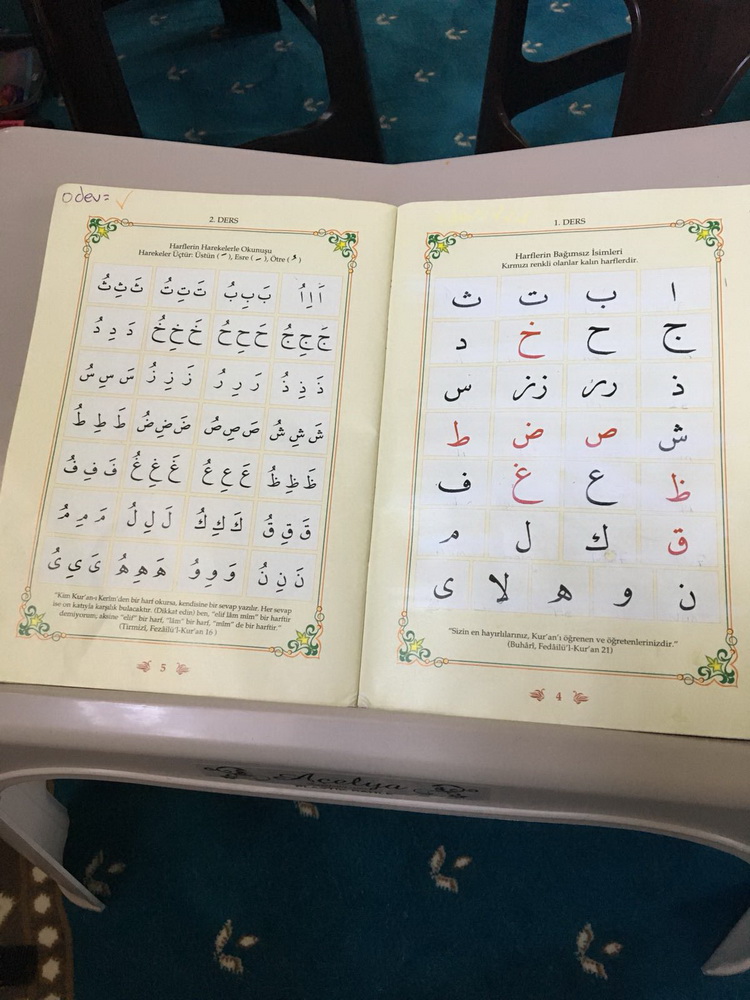 1. DERS
Harflerin Bağımsız İsimleri
Kırmızı renkli olanlar kalın harflerdir.
ا ب ت ث
ج ح خ د
ذ رر زز س
ش ص ض ط
ظ ع غ ف
ق ك ل م
ن و ه لا ى
"Sizin en hayırlılarınız, Kur'an'ı öğrenen ve öğretenlerinizdir."
(Buhârî, Fedâilü'l-Kur'an 21)
4
odev= ✓
2. DERS
Harflerin Harekelerle Okunuşu
Harekeler Üçtür: Üstün ( َ ), Esre ( ِ ), Ötre ( ُ )
اَ اِ اُ بَ بِ بُ تَ تِ تُ ثَ ثِ ثُ
جَ جِ جُ حَ حِ حُ خَ خِ خُ دَ دِ دُ
ذَ ذِ ذُ رَ رِ رُ زَ زِ زُ سَ سِ سُ
شَ شِ شُ صَ صِ صُ ضَ ضِ ضُ طَ طِ طُ
ظَ ظِ ظُ عَ عِ عُ غَ غِ غُ فَ فِ فُ
قَ قِ قُ كَ كِ كُ لَ لِ لُ مَ مِ مُ
نَ نِ نُ وَ وِ وُ هَ هِ هُ ىَ ىِ ىُ
"Kim Kur'an-ı Kerîm'den bir harf okursa, kendisine bir sevap yazılır. Her sevap
ise on katıyla karşılık bulacaktır. (Dikkat edin) ben, "elif lâm mîm" bir harftir
demiyorum; aksine "elif" bir harf, "lâm" bir harf, "mîm" de bir harftir."
(Tirmizî, Fezâilü'l-Kur'an 16 )
5
Açelya